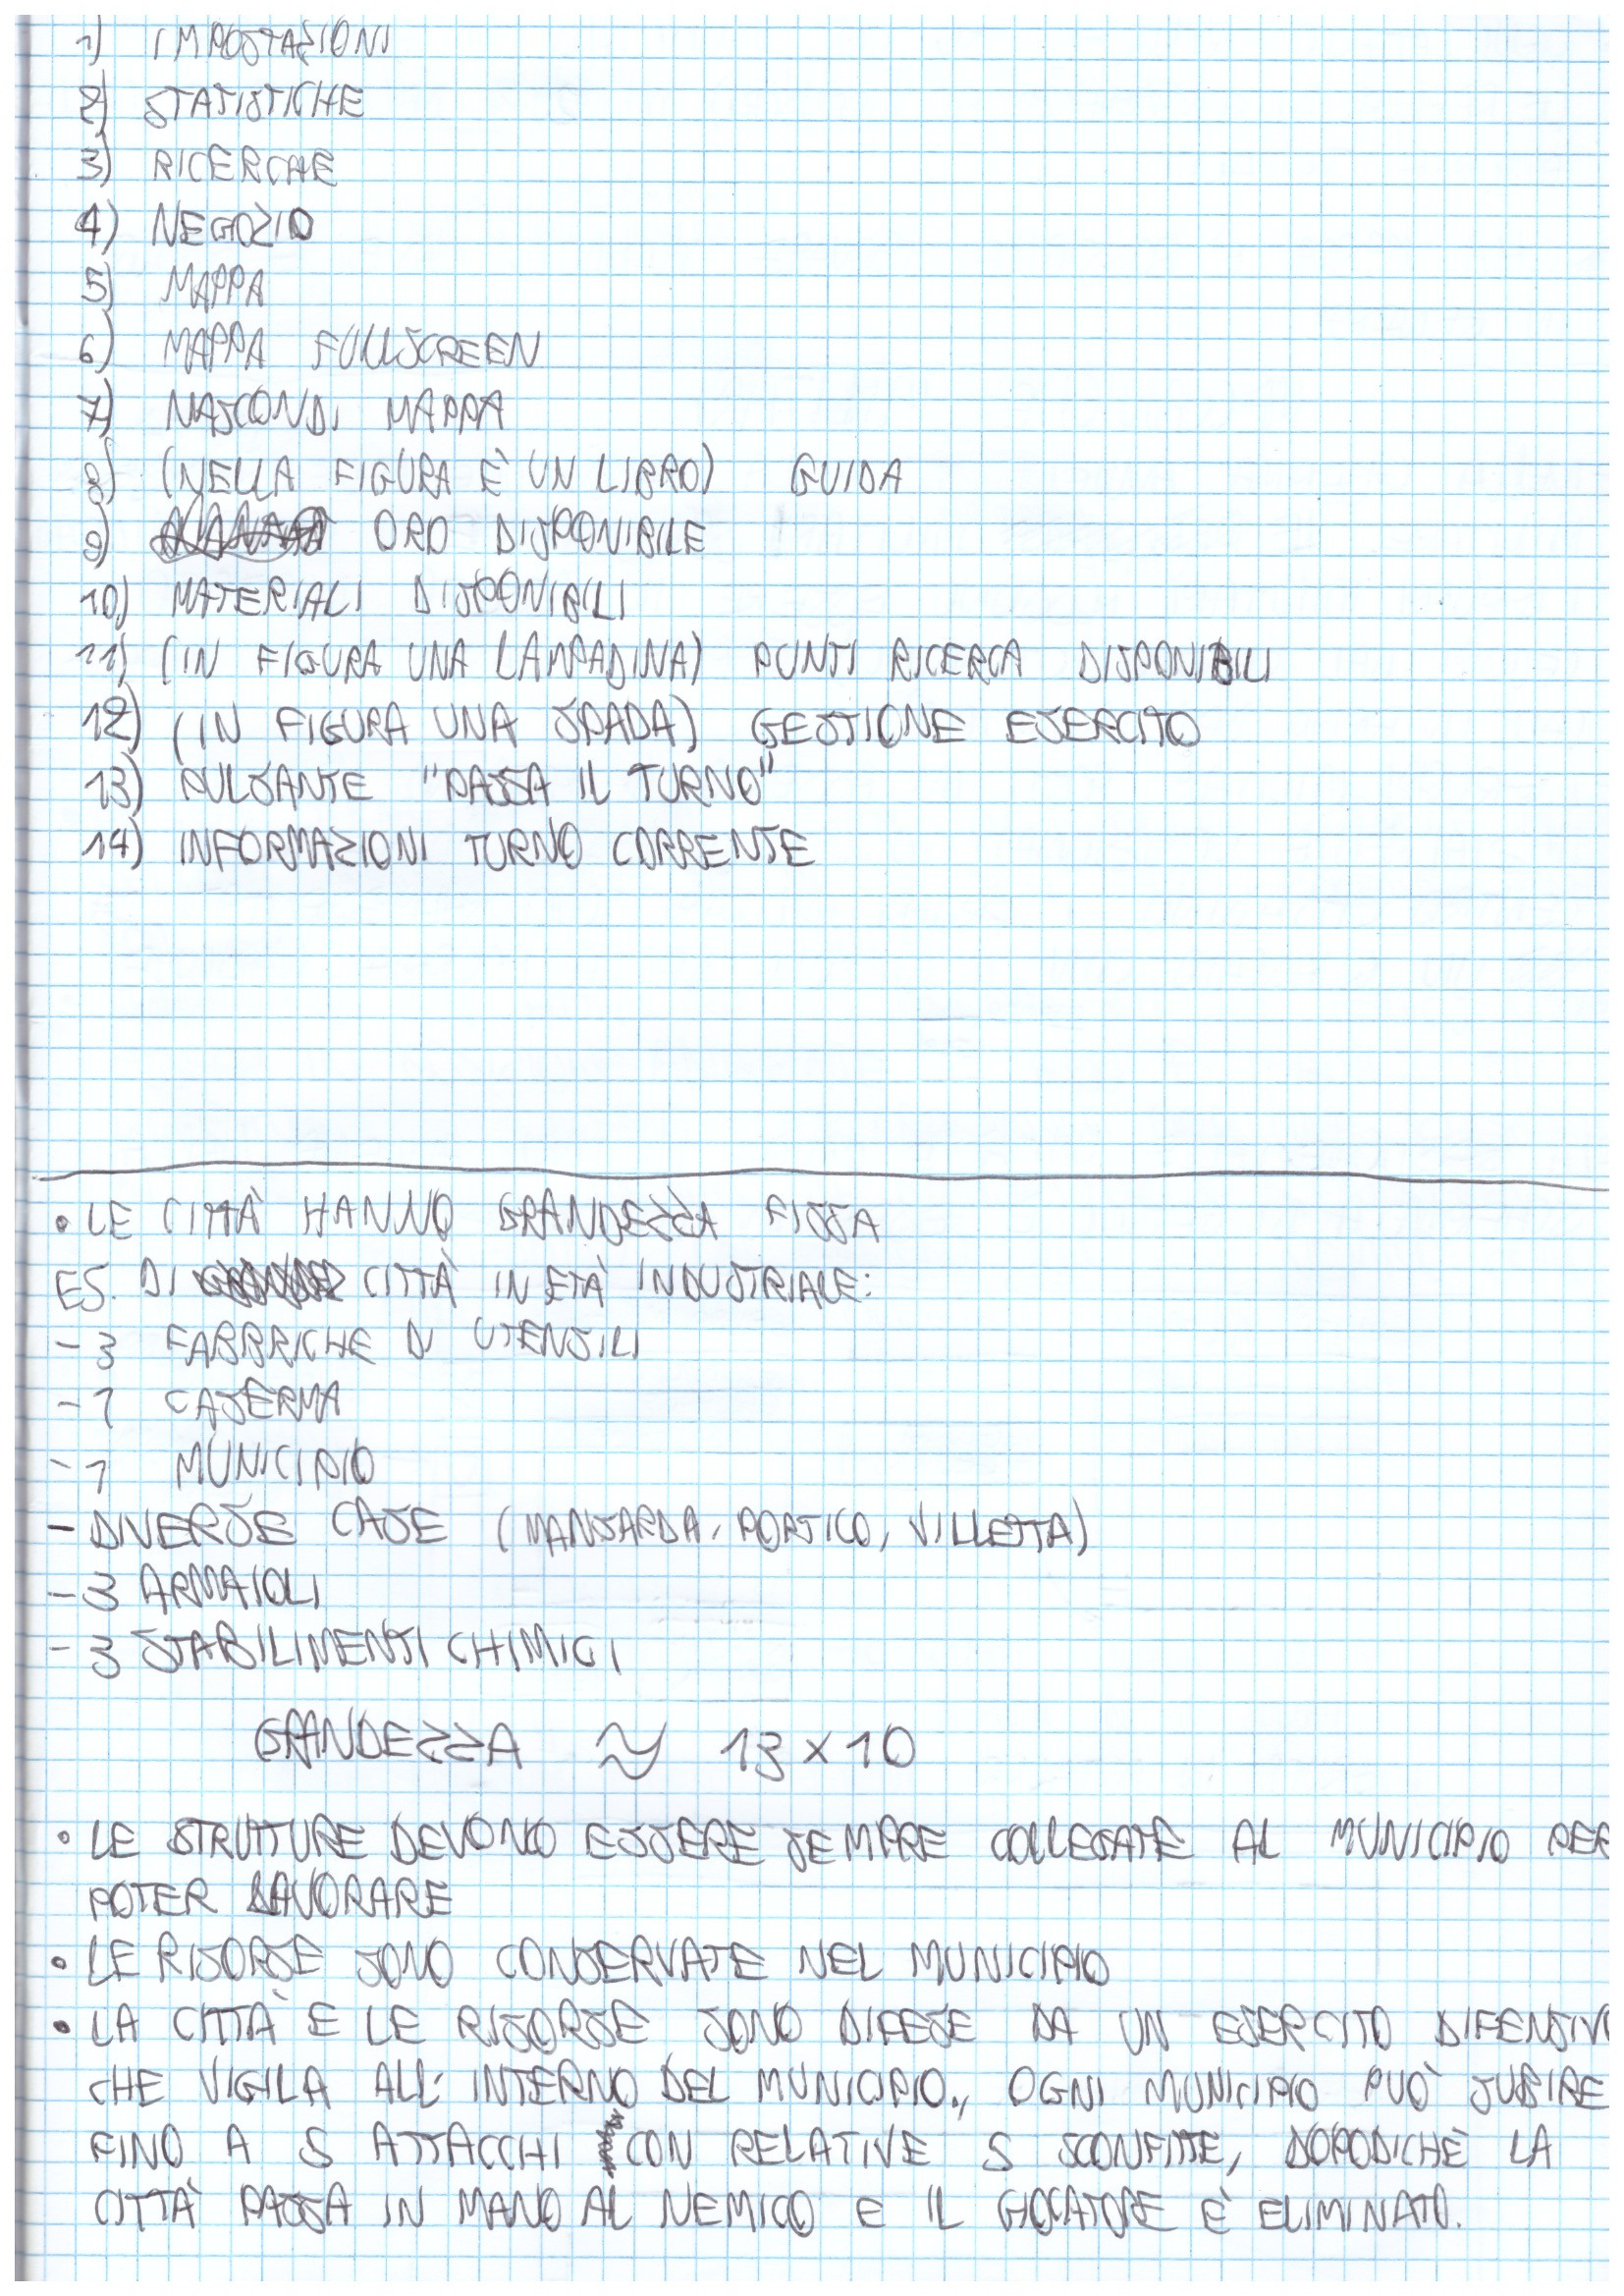 1) IMPOSTAZIONI
2) STATISTICHE
3) RICERCHE
4) NEGOZIO
5) MAPPA
6) MAPPA FULLSCREEN
7) NASCONDI MAPPA
8) (NELLA FIGURA È UN LIBRO) GUIDA
9) ORO DISPONIBILE
10) MATERIALI DISPONIBILI
11) (IN FIGURA UNA LAMPADINA) PUNTI RICERCA DISPONIBILI
12) (IN FIGURA UNA SPADA) GESTIONE ESERCITO
13) PULSANTE "PASSA IL TURNO"
14) INFORMAZIONI TURNO CORRENTE
• LE CITTÀ HANNO GRANDEZZA FISSA
ES. DI CITTÀ IN ETÀ INDUSTRIALE:
- 3 FABBRICHE DI UTENSILI
- 1 CASERMA
- 1 MUNICIPIO
- DIVERSE CASE (MANSARDA, PORTICO, VILLETTA)
- 3 ARMAIOLI
- 3 STABILIMENTI CHIMICI
GRANDEZZA ≈ 13 x 10
• LE STRUTTURE DEVONO ESSERE SEMPRE COLLEGATE AL MUNICIPIO PER
POTER LAVORARE
• LE RISORSE SONO CONSERVATE NEL MUNICIPIO
• LA CITTÀ E LE RISORSE SONO DIFESE DA UN ESERCITO DIFENSIV
CHE VIGILA ALL'INTERNO DEL MUNICIPIO., OGNI MUNICIPIO PUÒ SUBIRE
FINO A 5 ATTACCHI CON RELATIVE 5 SCONFITTE, DOPODICHÈ LA
CITTÀ PASSA IN MANO AL NEMICO E IL GIOCATORE È ELIMINATO.